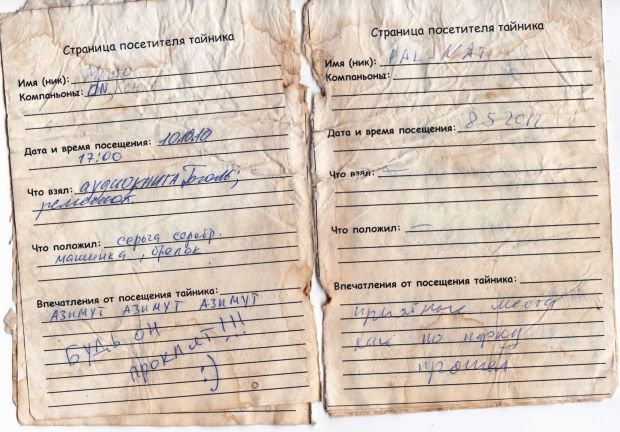 Страница посетителя тайника
Имя (ник):
Компаньоны: ON
Дата и время посещения: 10.10.10
17:00
Что взял: аудиокнига Гоголь;
ремешок
Что положил: серьга серебр.
машинка, брелок
Впечатления от посещения тайника:
АЗИМУТ АЗИМУТ АЗИМУТ
БУДЬ ОН
ПРОКЛЯТ!!!
:)
Страница посетителя тайника
Имя (ник):
Компаньоны:
Дата и время посещения: 8.5.2012
Что взял: —
Что положил: —
Впечатления от посещения тайника:
приятные места
как по парку
прошел